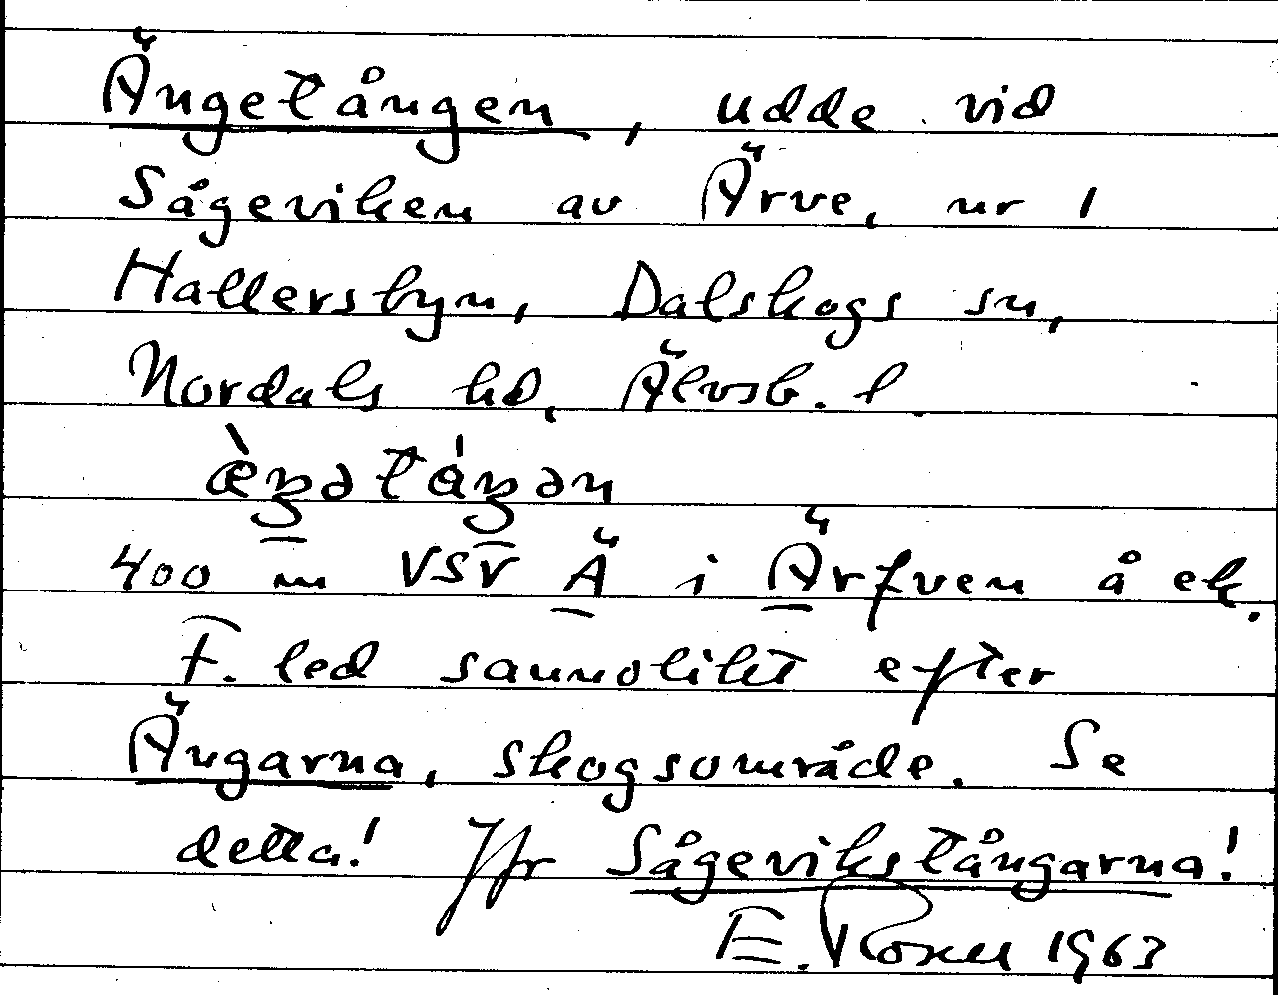 Ängetången, udde vid
Sågeviken av Ärve, nr 1
Hallersbyn, Dalskogs sn,
Nordals hd, Älvsb. l.
æ̀ŋətáŋən
400 m VSV Ä i Ärfven å ek.
F. led sannolikt efter
Ängarna, skogsområde. Se
detta! Jfr Sågevikstångarna!
E. Rosell 1963